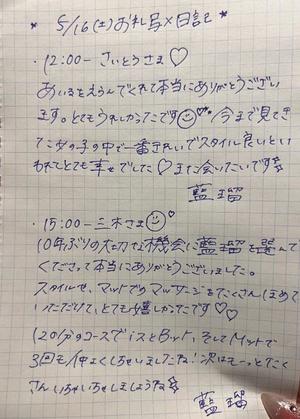 * 5/16(土)お礼写メ日記 *
・12:00- さいとうさま♡
あいるをえらんでくれて本当にありがとうござい
ます。とてもうれしかったです 今まで見てき
た女の子の中で一番きれいでスタイル良いとい
われてとても幸せでした♡また会いたいです☆
藍瑠
・15:00- 三木さま
10年ぶりの大切な機会に藍瑠を選んで
くださって本当にありがとうございました。
スタイルや、マットでのマッサージをたくさんほめて
いただけて、とても嬉しかったです♡♡
120分のコースでイスとベット、そしてマットで
3回も仲よくしちゃいましたね!次はもーっとたく
さんいちゃいちゃしましょうね☆
藍瑠